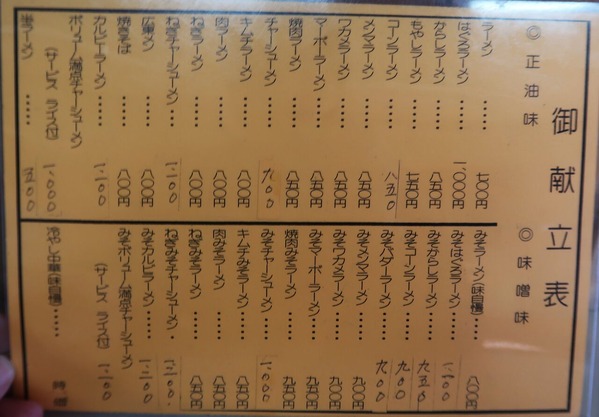 御献立表
◎正油味
ラーメン・・・・・七〇〇円
はぐろラーメン・・・・一、〇〇〇円
からしラーメン・・・・八五〇円
もやしラーメン・・・・七五〇円
コーンラーメン・・・・八五0
メンマラーメン・・・・八五〇円
ワカメラーメン・・・・八五〇円
マーボーラーメン・・・八五〇円
焼肉ラーメン・・・・・八五〇円
チャーシューメン・・・九00
キムチラーメン・・・・八〇〇円
肉ラーメン・・・・・八〇〇円
ねぎラーメン・・・・・八〇〇円
ねぎチャーシューメン・・
広東メン・・・・・八〇〇円
焼きそば・・・・・八〇〇円
カルビーラーメン・・・・
ボリューム満点チャーシューメン
(サービス ライス付) 一、000
半ラーメン・・・・・五00
◎味噌味
みそラーメン(味自慢)・・・八〇〇円
みそはぐろラーメン・・・
みそからしラーメン・・・・九五0
みそコーンラーメン・・・・九00
みそバターラーメン・・・・九00
みそメンマラーメン・・・・九〇〇円
みそワカメラーメン・・・・九〇〇円
みそマーボーラーメン・・・九五〇円
焼肉みそラーメン・・・・・九五〇円
みそチャーシューメン・・・一、000
キムチみそラーメン・・・・八五〇円
肉みそラーメン・・・・・八五〇円
ねぎみそラーメン・・・・・八五〇円
ねぎみそチャーシューメン・
みそカルビラーメン・・・・
みそボリューム満点チャーシューメン
(サービス ライス付)
冷やし中華(味自慢)・・・・・時価